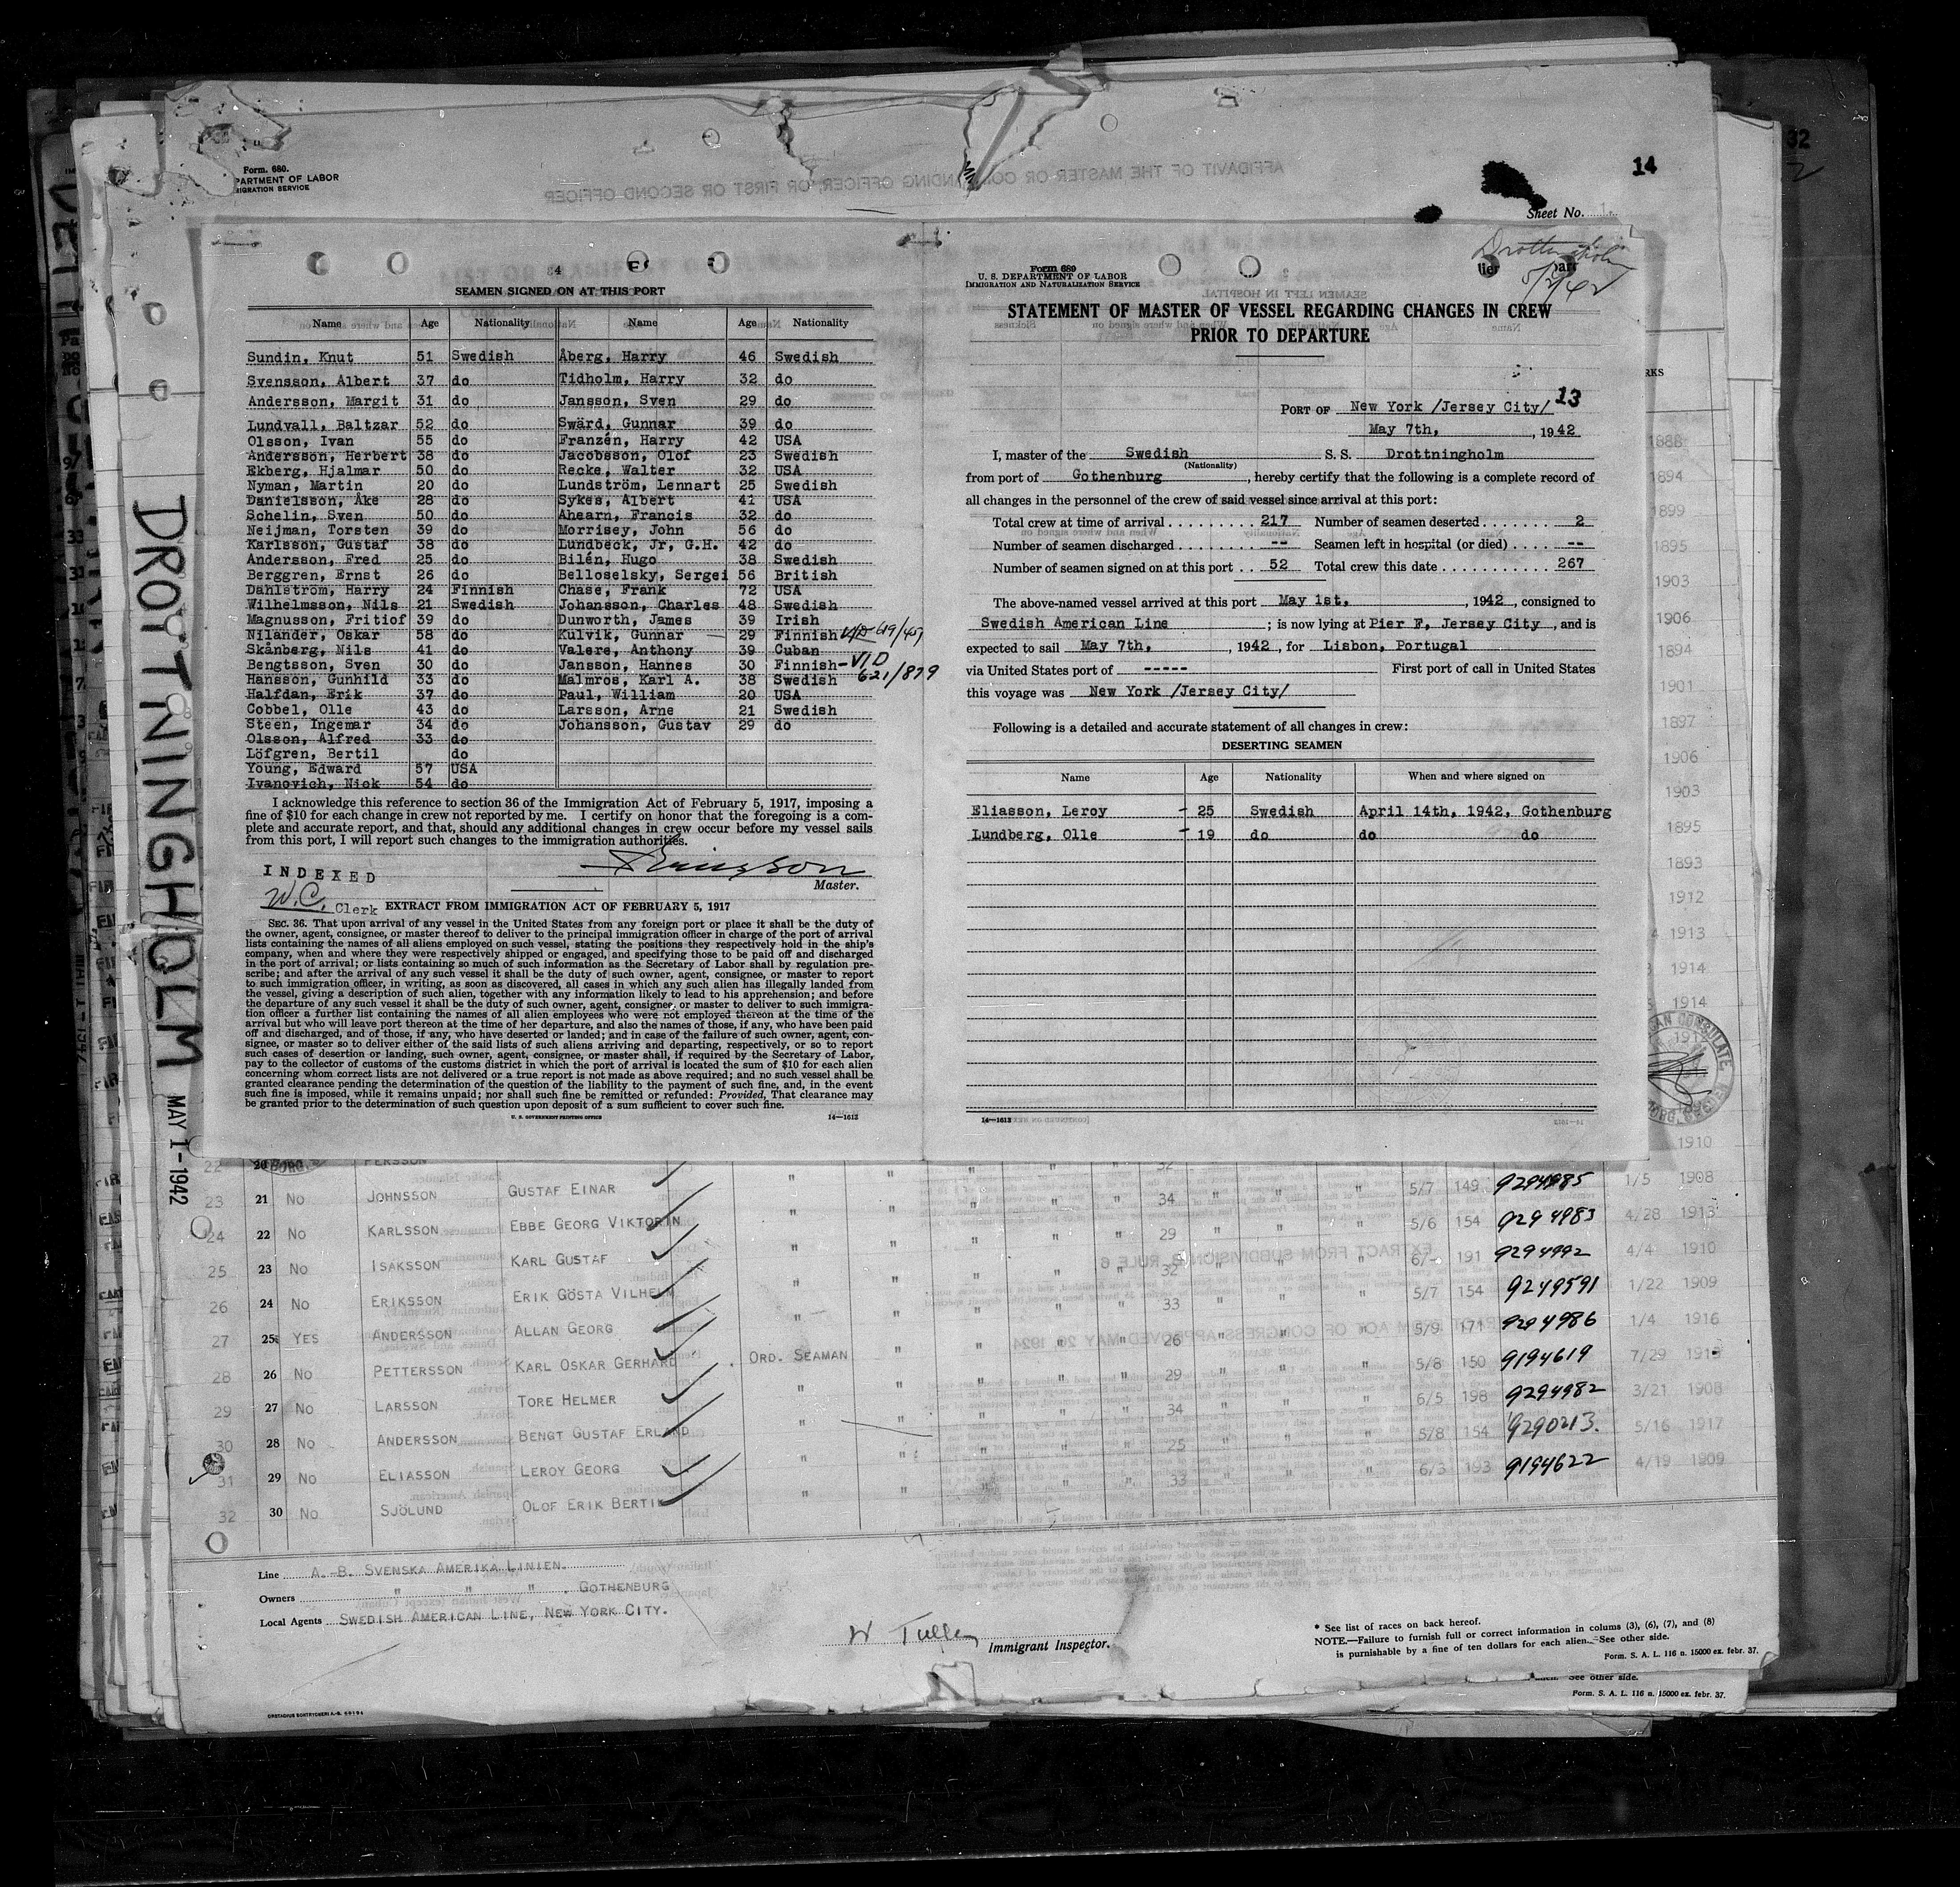 Form. 680.
PARTMENT OF LABOR
MIGRATION SERVICE
AFFIDAVIT OF THE MASTER OR COMMANDING OFFICER, OR FIRST OR SECOND OFFICER
14
Sheet No.
DROTTNINGHOLM
MAY 1-1942
4
SEAMEN SIGNED ON AT THIS PORT
Name Age Nationality Name Age Nationality
Sundin, Knut 51 Swedish Åberg, Harry 46 Swedish
Svensson, Albert 37 do Tidholm, Harry 32 do
Andersson, Margit 31 do Jansson, Sven 29 do
Lundvall, Baltzar 52 do Swärd, Gunnar 39 do
Olsson, Ivan 55 do Franzén, Harry 42 USA
Andersson, Herbert 38 do Jacobsson, Olof 23 Swedish
Ekberg, Hjalmar 50 do Recke, Walter 32 USA
Nyman, Martin 20 do Lundström, Lennart 25 Swedish
Danielsson, Åke 28 do Sykes, Albert 41 USA
Schelin, Sven 50 do Ahearn, Francis 32 do
Neijman, Torsten 39 do Morrisey, John 56 do
Karlsson, Gustaf 38 do Lundbeck, Jr, G.H. 42 do
Andersson, Fred 25 do Bilén, Hugo 38 Swedish
Berggren, Ernst 26 do Belloselsky, Sergei 56 British
Dahlström, Harry 24 Finnish Chase, Frank 72 USA
Wilhelmsson, Nils 21 Swedish Johansson, Charles 48 Swedish
Magnusson, Fritiof 39 do Dunworth, James 39 Irish
Nilander, Oskar 58 do Kulvik, Gunnar 29 Finnish
Skånberg, Nils 41 do Valere, Anthony 39 Cuban
Bengtsson, Sven 30 do Jansson, Hannes 30 Finnish - V/D
Hansson, Gunhild 33 do Malmros, Karl A. 38 Swedish 621/879
Halfdan, Erik 37 do Paul, William 20 USA
Cobbel, Olle 43 do Larsson, Arne 21 Swedish
Steen, Ingemar 34 do Johansson, Gustav 29 do
Olsson, Alfred 33 do
Löfgren, Bertil do
Young, Edward 57 USA
Ivanovich, Nick 54 do
I acknowledge this reference to section 36 of the Immigration Act of February 5, 1917, imposing a
fine of $10 for each change in crew not reported by me. I certify on honor that the foregoing is a com-
plete and accurate report, and that, should any additional changes in crew occur before my vessel sails
from this port, I will report such changes to the immigration authorities.
INDEXED
Master.
W.C. Clerk
EXTRACT FROM IMMIGRATION ACT OF FEBRUARY 5, 1917
SEC. 36. That upon arrival of any vessel in the United States from any foreign port or place it shall be the duty of
the owner, agent, consignee, or master thereof to deliver to the principal immigration officer in charge of the port of arrival
lists containing the names of all aliens employed on such vessel, stating the positions they respectively hold in the ship's
company, when and where they were respectively shipped or engaged, and specifying those to be paid off and discharged
in the port of arrival; or lists containing so much of such information as the Secretary of Labor shall by regulation pre-
scribe; and after the arrival of any such vessel it shall be the duty of such owner, agent, consignee, or master to report
to such immigration officer, in writing, as soon as discovered, all cases in which any such alien has illegally landed from
the vessel, giving a description of such alien, together with any information likely to lead to his apprehension; and before
the departure of any such vessel it shall be the duty of such owner, agent, consignee, or master to deliver to such immigra-
tion officer a further list containing the names of all alien employees who were not employed thereon at the time of the
arrival but who will leave port thereon at the time of her departure, and also the names of those, if any, who have been paid
off and discharged, and of those, if any, who have deserted or landed; and in case of the failure of such owner, agent, con-
signee, or master so to deliver either of the said lists of such aliens arriving and departing, respectively, or so to report
such cases of desertion or landing, such owner, agent, consignee, or master shall, if required by the Secretary of Labor,
pay to the collector of customs of the customs district in which the port of arrival is located the sum of $10 for each alien
concerning whom correct lists are not delivered or a true report is not made as above required; and no such vessel shall be
granted clearance pending the determination of the question of the liability to the payment of such fine, and, in the event
such fine is imposed, while it remains unpaid; nor shall such fine be remitted or refunded: Provided, That clearance may
be granted prior to the determination of such question upon deposit of a sum sufficient to cover such fine.
U. S. GOVERNMENT PRINTING OFFICE 14—1613
Form 689
U. S. DEPARTMENT OF LABOR
IMMIGRATION AND NATURALIZATION SERVICE
Drottningholm
5/2/42
STATEMENT OF MASTER OF VESSEL REGARDING CHANGES IN CREW
PRIOR TO DEPARTURE
PORT OF New York /Jersey City/ 13
May 7th, , 1942
I, master of the Swedish S. S. Drottningholm
(Nationality)
from port of Gothenburg , hereby certify that the following is a complete record of
all changes in the personnel of the crew of said vessel since arrival at this port:
Total crew at time of arrival 217 Number of seamen deserted 2
Number of seamen discharged -- Seamen left in hospital (or died) --
Number of seamen signed on at this port 52 Total crew this date 267
The above-named vessel arrived at this port May 1st, , 1942, consigned to
Swedish American Line ; is now lying at Pier F, Jersey City , and is
expected to sail May 7th, , 1942, for Lisbon, Portugal
via United States port of ----- First port of call in United States
this voyage was New York /Jersey City/
Following is a detailed and accurate statement of all changes in crew:
DESERTING SEAMEN
Name Age Nationality When and where signed on
Eliasson, Leroy - 25 Swedish April 14th, 1942, Gothenburg
Lundberg, Olle - 19 do do do
14—1613
20 PERSSON
21 No JOHNSSON GUSTAF EINAR " " " " 34 " " " 5/7 149 9294985 1/5 1908
22 No KARLSSON EBBE GEORG VIKTORIN " " " " 29 " " " 5/6 154 9294983 4/28 1913
23 No ISAKSSON KARL GUSTAF " " " " 32 " " " 6/- 191 9294992 4/4 1910
24 No ERIKSSON ERIK GÖSTA VILHELM " " " " 33 " " " 5/7 154 9249591 1/22 1909
25 YES ANDERSSON ALLAN GEORG " " " " 26 " " " 5/9 171 9294986 1/4 1916
26 No PETTERSSON KARL OSKAR GERHARD ORD. SEAMAN " " " " 29 " " " 5/8 150 9194619 7/29 1913
27 No LARSSON TORE HELMER " " " " 34 " " " 6/5 198 9294982 3/21 1908
28 No ANDERSSON BENGT GUSTAF ERLAND " " " " 25 " " " 5/8 154 9290213. 5/16 1917
29 No ELIASSON LEROY GEORG " " " " 33 " " " 6/3 193 9194622 4/19 1909
30 No SJÖLUND OLOF ERIK BERTIL
Line A.-B. SVENSKA AMERIKA LINIEN.
Owners " " " GOTHENBURG
Local Agents SWEDISH AMERICAN LINE, NEW YORK CITY.
Immigrant Inspector.
* See list of races on back hereof.
NOTE.—Failure to furnish full or correct information in colums (3), (6), (7), and (8)
is punishable by a fine of ten dollars for each alien. See other side.
Form. S. A. L. 116 n. 15000 ex. febr. 37.
See other side.
Form. S. A. L. 116 n. 15000 ex. febr. 37.